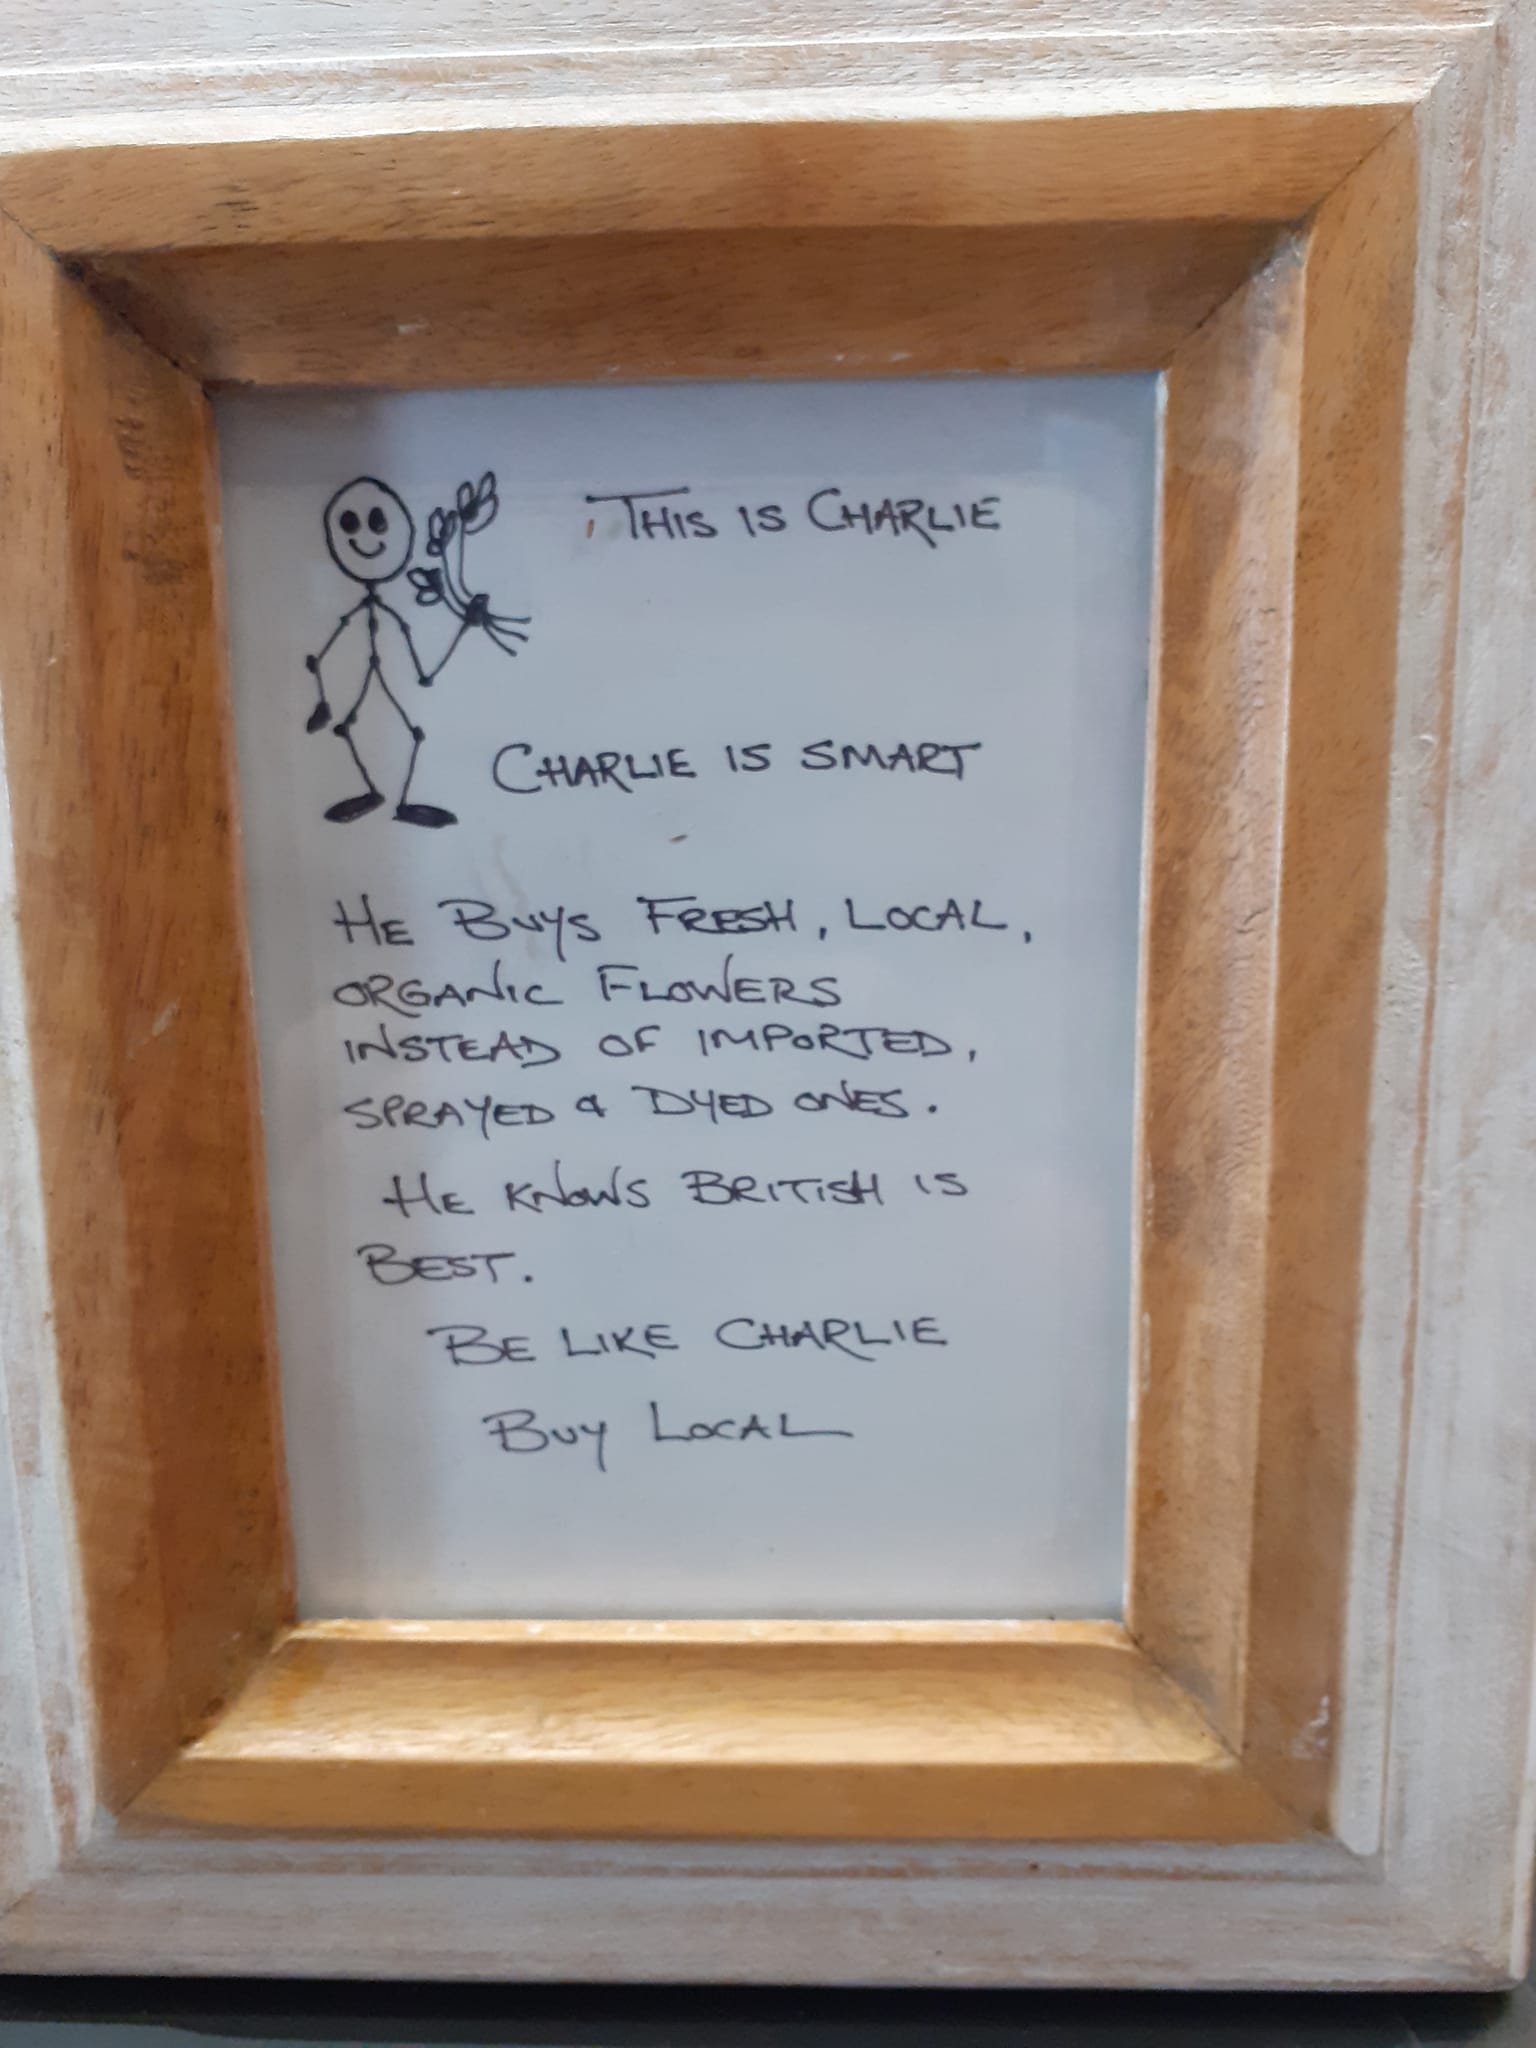 THIS IS CHARLIE
CHARLIE IS SMART
HE BUYS FRESH, LOCAL,
ORGANIC FLOWERS
INSTEAD OF IMPORTED,
SPRAYED & DYED ONES.
HE KNOWS BRITISH IS
BEST.
BE LIKE CHARLIE
BUY LOCAL